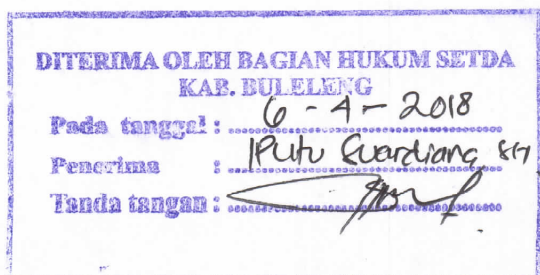 DITERIMA OLEH BAGIAN HUKUM SETDA
KAB. BULELENG
Pada tanggal : 6 - 4 - 2018
Penerima : IPutu Suardiana, SH
Tanda tangan :